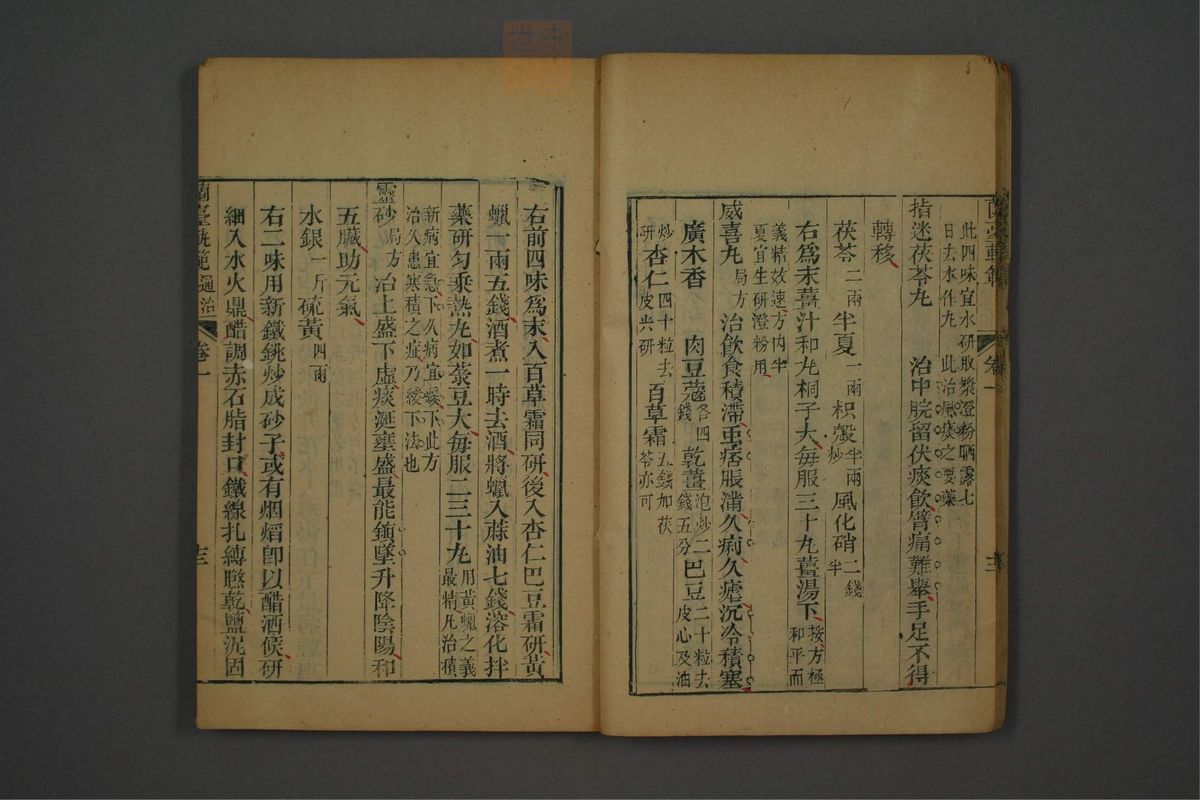 蘭臺軌範 卷一 三
此四味宜水研取漿澄粉晒露七
日去水作丸 此治風痰之要藥
指迷茯苓丸 治中脘留伏痰飲臂痛難舉手足不得
轉移
茯苓二兩 半夏一兩 枳殼半兩炒 風化硝二錢半
右爲末薑汁和丸桐子大每服三十丸薑湯下按方極和平而
義精效速方內半
夏宜生研澄粉用
威喜丸局方 治飲食積滯重痞脹滿久痢久瘧沉冷積塞
廣木香 肉豆蔻各四錢 乾薑泡炒二錢五分 巴豆二十粒去皮心及油
炒研 杏仁四十粒去皮尖研 百草霜五錢加茯苓亦可
右前四味爲末入百草霜同研後入杏仁巴豆霜研黃
蠟一兩五錢酒煮一時去酒將蠟入蔴油七錢溶化拌
藥研匀乘熱丸如菉豆大每服二三十丸用黃蠟之義最精凡治積
新病宜急下久病宜緩下此方
治久患寒積之症乃緩下法也
靈砂局方 治上盛下虛痰涎壅盛最能鎮墜升降陰陽和
五臟助元氣
水銀一斤 硫黃四兩
右二味用新鐵銚炒成砂子或有烟熖卽以醋洒候研
細入水火鼎醋調赤石脂封口鐵線扎縛曬乾鹽泥固
蘭臺軌範 通治 卷一 三